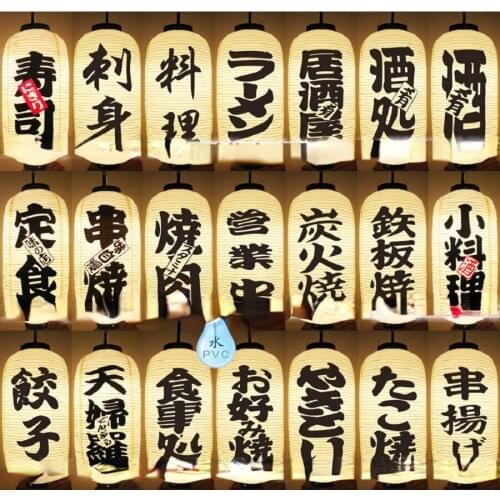 寿司
にぎり
刺身
料理
ラーメン
居酒屋
肴
酒処
肴
酒
肴
定食
味の味
串焼
焼肉
スタミナ
営業中
炭火焼
鉄板焼
小料理
酒
水
PVC
餃子
天婦羅
食事処
お好み焼
やきとり
たこ焼
串揚げ